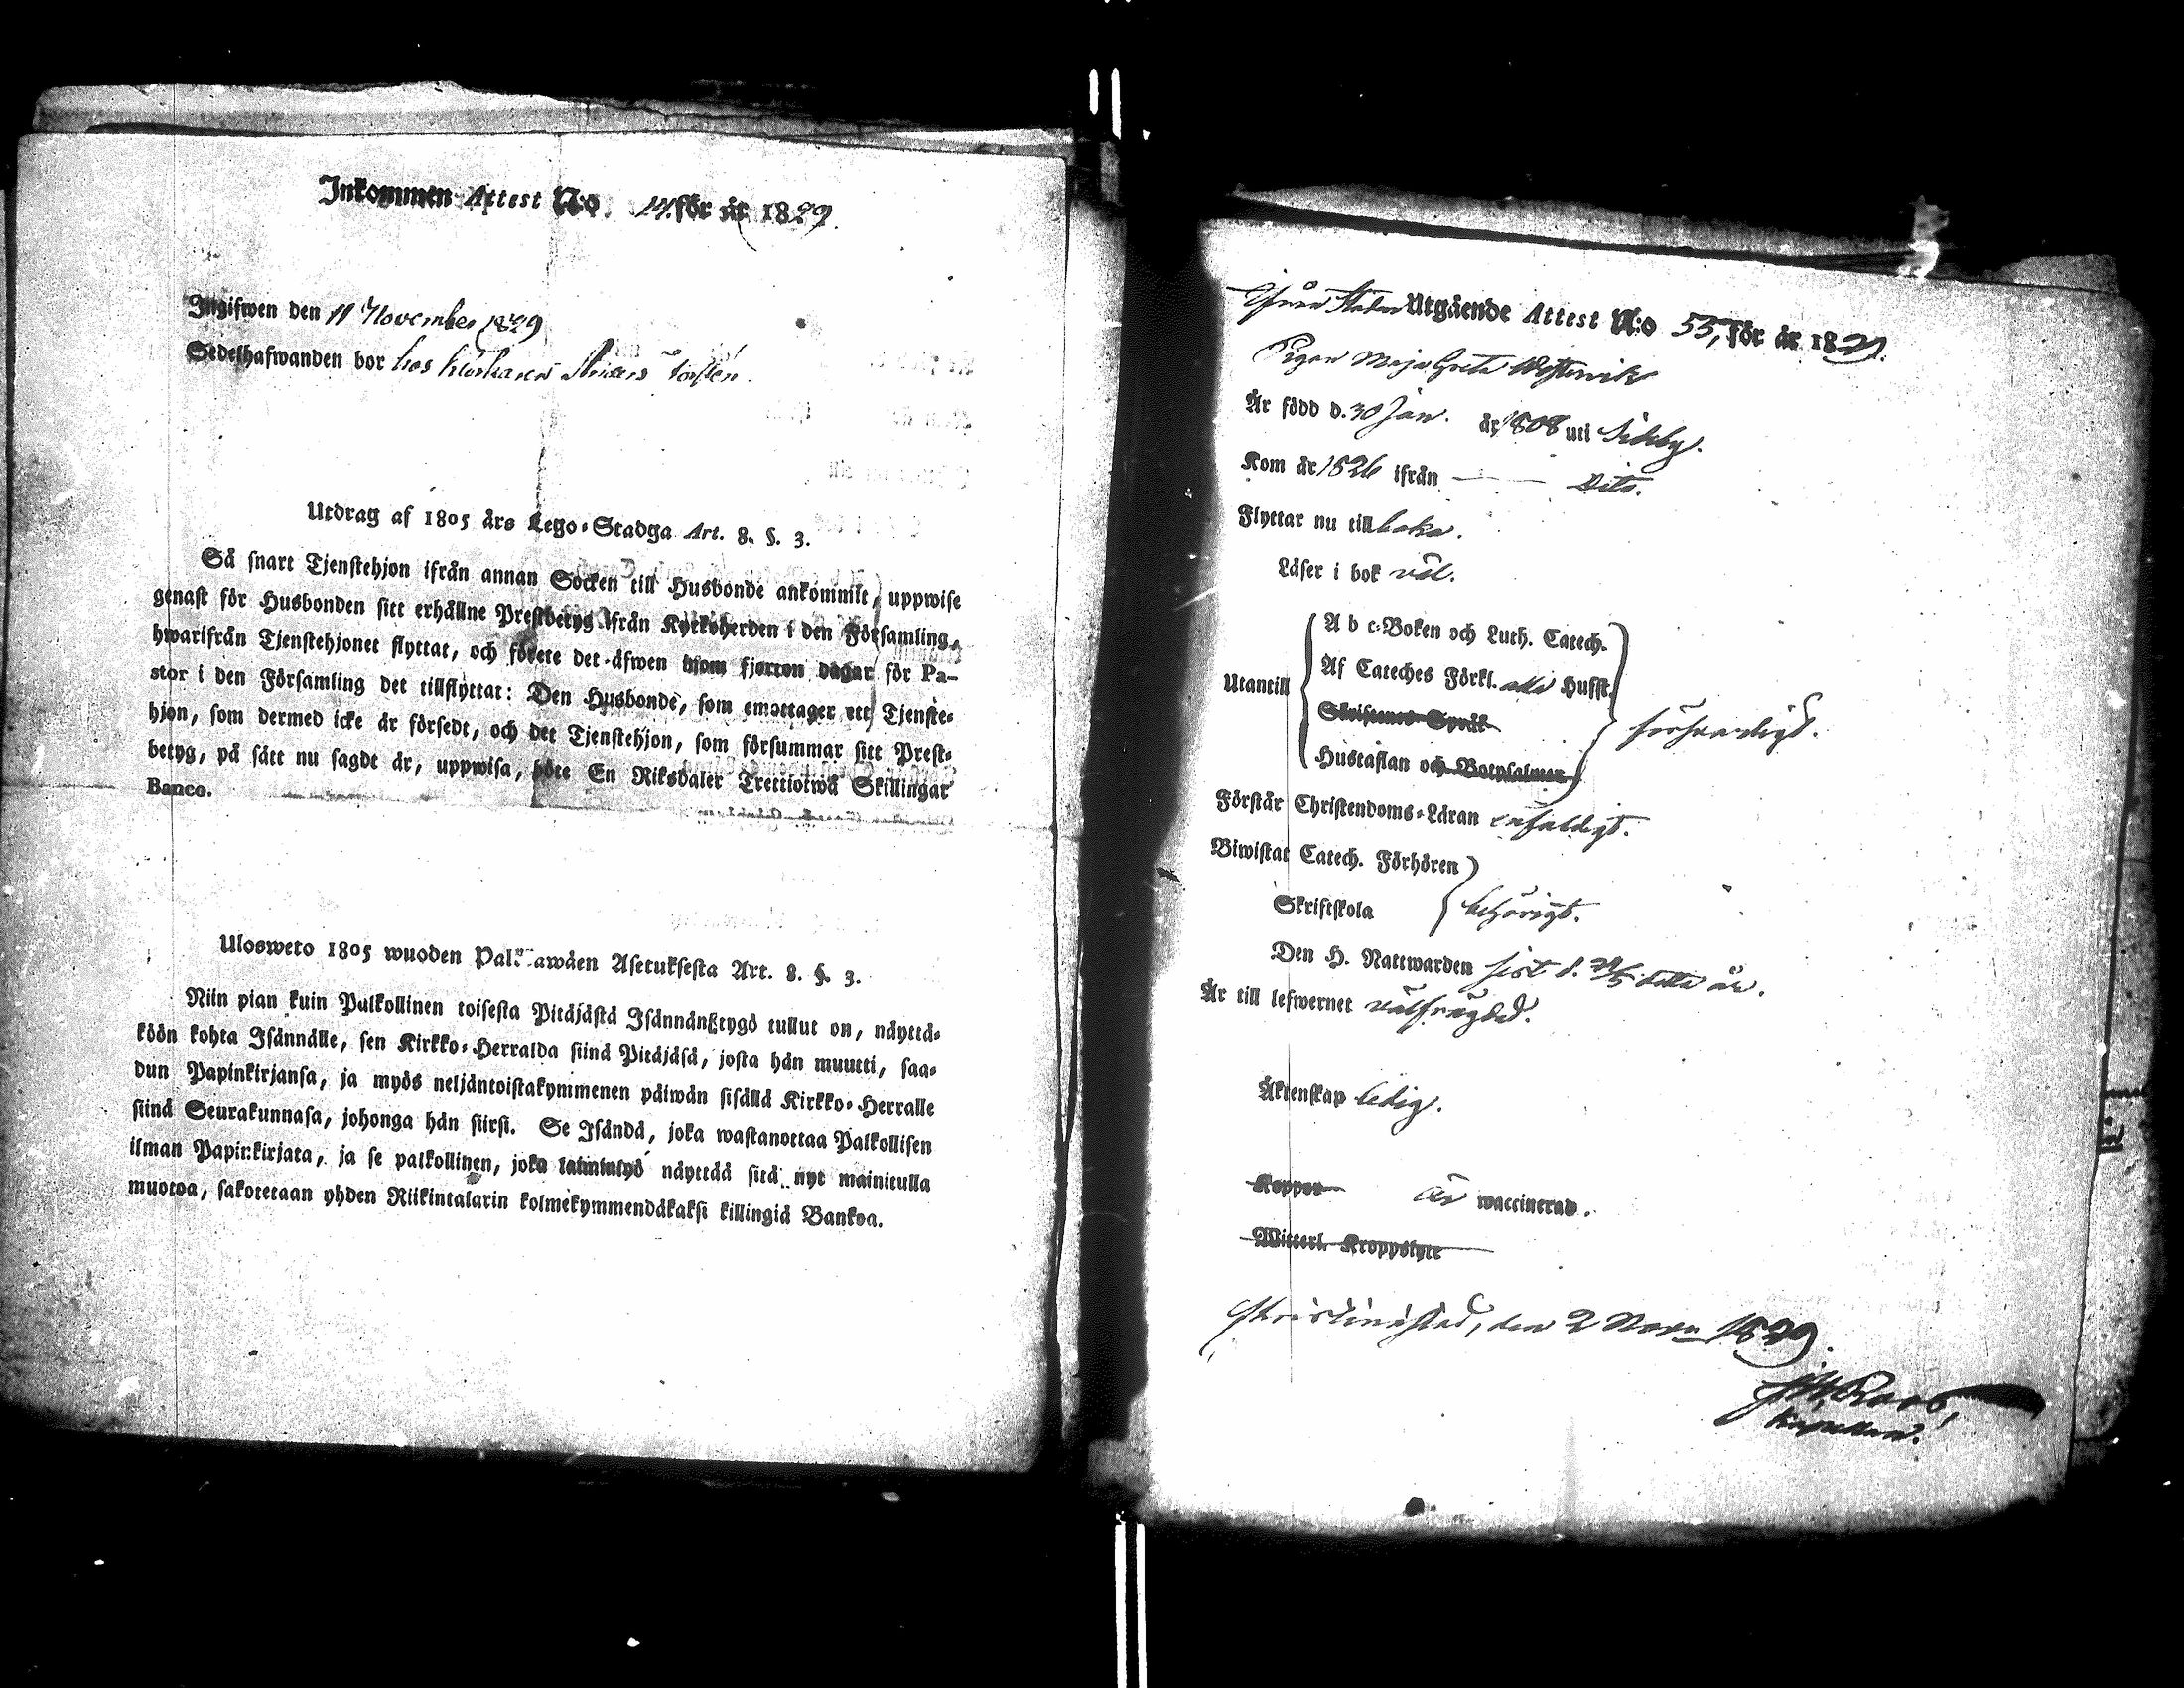 Inkommen Attest N:o 14. för år 1829.
Ingifwen den 11 November 1829
Sedelhafwanden bor hos Anders
Utdrag af 1805 års Lego-Stadga Art. 8. §. 3.
Så snart Tjenstehjon ifrån annan Socken till Husbonde ankommit, uppwise
genast för Husbonden sitt erhållne Prestbetyg ifrån Kyrkoherden i den Församling,
hwarifrån Tjenstehjonet flyttat, och förete det äfwen inom fjorton dagar för Pa-
stor i den Församling det tillflyttat: Den Husbonde, som emottager ett Tjenste-
hjon, som dermed icke är försedt, och det Tjenstehjon, som försummar sitt Prest-
betyg, på sätt nu sagdt är, uppwisa, böte En Riksdaler Trettiotwå Skillingar
Banco.
Ulosweto 1805 wuoden Palkkawäen Asetuksesta Art. 8. §. 3.
Niin pian kuin Palkollinen toisesta Pitäjästä Isännäntygö tullut on, näyttä-
köön kohta Isännälle, sen Kirkko-Herralda siinä Pitäjäsä, josta hän muutti, saa-
dun Papinkirjansa, ja myös neljäntoistakymmenen päiwän sisällä Kirkko-Herralle
siinä Seurakunnasa, johonga hän siirsi. Se Isändä, joka wastanottaa Palkollisen
ilman Papinkirjata, ja se palkollinen, joka laiminlyö näyttää sitä nyt mainitulla
muotoa, sakotetaan yhden Riikintalarin kolmekymmendäkaksi killingiä Bankoa.
ifrån Staden Utgående Attest N:o 55, för år 1829.
Pigan Maja Greta Westervik
Är född d. 30 Jan. år 1808 uti Sideby.
Kom år 1826 ifrån — — Dito.
Flyttar nu tillbaka.
Läser i bok väl.
A b c-Boken och Luth. Catech.
Af Cateches Förkl. alla Hufst.
Utantill
Skriftenes Språk
försvarligt.
Hustaflan och Botpsalmer
Förstår Christendoms-Läran enfaldigt.
Biwistat Catech. Förhören
Skriftskola behörigt.
Den H. Nattwarden sist d. detta år.
Är till lefwernet välfrägdad.
Äktenskap ledig.
Koppor är waccinerad.
Witterl. Kroppslyte
Christinestad, den 2 Novr 1829.
Roos,
Kapellan.